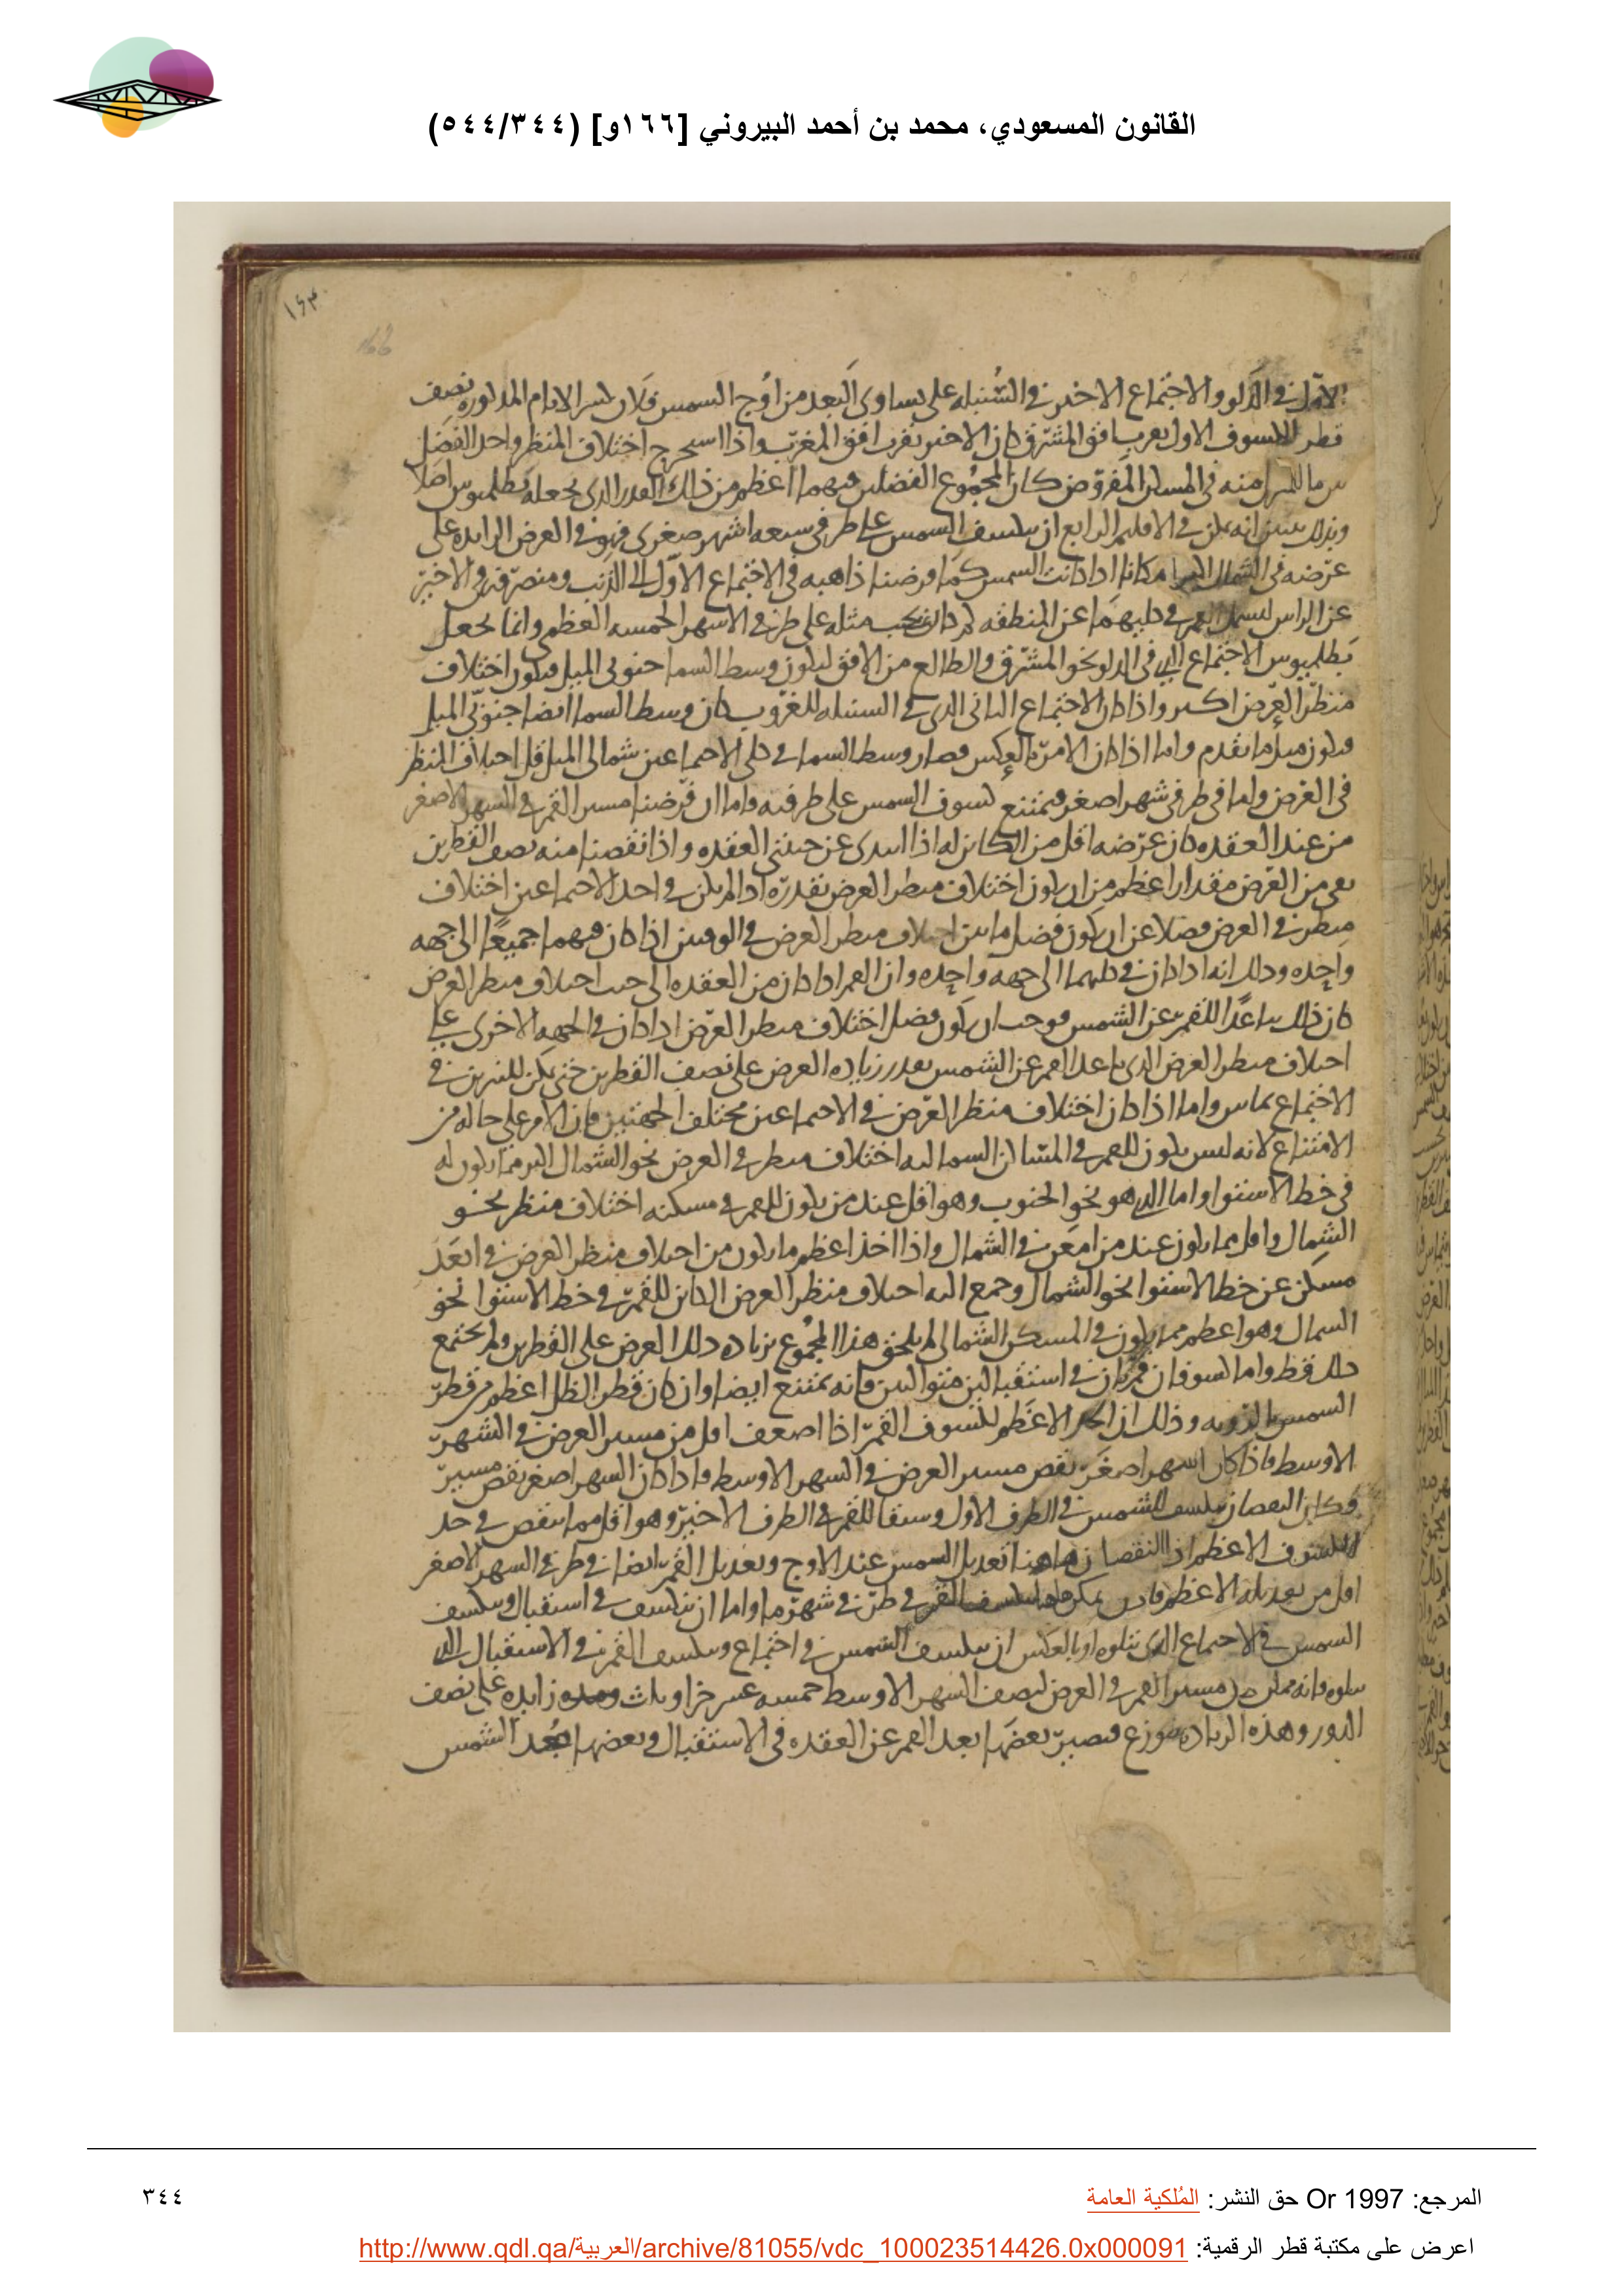 القانون المسعودي، محمد بن أحمد البيروني [١٦٦و] (٥٤٤/٣٤٤)
١٦٣
166
في الدلو والاجتماع الاخير في السنبله على تساوى البعد من اوج السمس فلان المدلوره نصف
قطر الاول بقرب افق المشرق كان الاخير بقرب افق المغرب واذا اسىحرج اختلاف المنظر واحد الفضل
منه في المفروض كان المجموع الفضلىن فيهما اعظم من ذلك القدر الذى يجعله بطلميوس اصلا
انه في الاقليم الرابع ان ىىلسف السمس على طرفى سبعه اشهر صغرى فهو في العرض الزايده على
عرضه في الشمال امكانا اذا كانت السمس كما فرضنا ذاهبه في الاجتماع الاول الى الذنب ومنصرفه في الاخير
عن الراس القمر في كليهما عن المنطقه مثله على طرفى الاسهر الخمسه العظمى وانما يجعل
بطلميوس الاجتماع الذى في الدلو نحو المشرق والطالع من الافق ليكون وسط السما جنوبى الميل فيكون اختلاف
منظر العرض اكىر واذا كان الاجتماع الىانى الذى في السىبله للغروب كان وسط السما ايضا جنوبى الميل
فىلون مىل ما ىقدم واما اذا كان الامر بالعكس فصار وسط السما في كلى الاجىماعىن شمالى الميل قل اختلاف المنظر
في العرض واما في طرفى شهر اصغر فيمتنع كسوف السمس على طرفيه واما ان فرضنا مسىر القمر في السهر الاصغر
من عند العقده كان عرضه اقل من الكاىن له اذا اىىدى عن جىىى العقده واذا نقصنا منه نصف القطرين
ىقى من العرض مقدار اعظم من ان ىلون اختلاف مىظر العرض بقدره اذا لم ىلن في احد الاجىماعىن اختلاف
مىظر في العرض فضلا عن ان يكون فضل ما ىىن اختلاف مىظر العرض في الوقىىن اذا كان فيهما جميعا الى جهه
واحده ودلك انه اذا كان في كلىهما الى جهه واحده وان القمر اذا كان من العقده الى حىث اختلاف مىظر العرض
كان ذلك مىاعدا للقمر عن الشمس فوجب ان يكون فضل اختلاف مىظر العرض اذا كان في الجهه الاخرى على
اختلاف مىظر العرض الذى ىاعد القمر عن الشمس بقدر زياده العرض على نصف القطرين حتى يمكن للنيرين في
الاجتماع تماس واما اذا كان اختلاف منظر العرض في الاجىماعىن مختلف الجهتين فان الامر على حاله من
الامتناع لانه ليس يلون للقمر في المساكن السمالىه اختلاف مىظر في العرض نحو الشمال اكبر مما ىلون له
في خط الاستوا واما الذى هو نحو الجنوب وهو اقل عند من يلون للقمر في مسكنه اختلاف منظر نحو
الشمال واقل مما ىلون عند من امعن في الشمال واذا اخذ اعظم ما ىلون من اختلاف منظر العرض في ابعد
مسكن عن خط الاستوا نحو الشمال وجمع اليه اختلاف منظر العرض الكائن للقمر في خط الاستوا نحو
السمال وهو اعظم مما يلون في المسكن الشمالى لم يلحق هذا المجموع بزياده دلك العرض على القطرين ولم يجتمع
دلك قط واما كسوفان قمريان في استقبالين متوالىىن فانه يمتنع ايضا وان كان قطر الظل اعظم من قطر
السمس بالرويه وذلك ان الحد الاعظم لكسوف القمر اذا اضعف اقل من مسىر العرض في الشهر
الاوسط فاذا كان الشهر اصغر نقص مسىر العرض في السهر الاوسط فاذا كان السهر اصغر نقص مسير
النقصان للشمس في الطرف الاول وسبقا للقمر في الطرف الاخير وهو اقل مما ىنقص في حد
الكسوف الاعظم اذ النقصان هاهنا تعديل السمس عند الاوج وتعديل القمر ايضا في طرفى السهر الاصغر
اقل من ىعدىله الاعظم يمكن القمر في طرفى شهر ما واما ان ىىلسف في استقبال وىىلسف
السمس في الاجىماع الذى يتلوه او بالعكس ان ىىلسف الشمس في اجتماع وىىلسف القمر في الاستقبال الذى
ىىلوه فانه ممكن مسىر القمر في العرض لنصف الشهر الاوسط خمسه عسر جزا وىلث زايده على نصف
الدور وهذه الزياده ىىوزع فىصير بعضها بعد القمر عن العقده في الاستقبال وبعضها بعد الشمس
المرجع: Or 1997 حق النشر: المُلكية العامة
٣٤٤
اعرض على مكتبة قطر الرقمية: http://www.qdl.qa/العربية/archive/81055/vdc_100023514426.0x000091